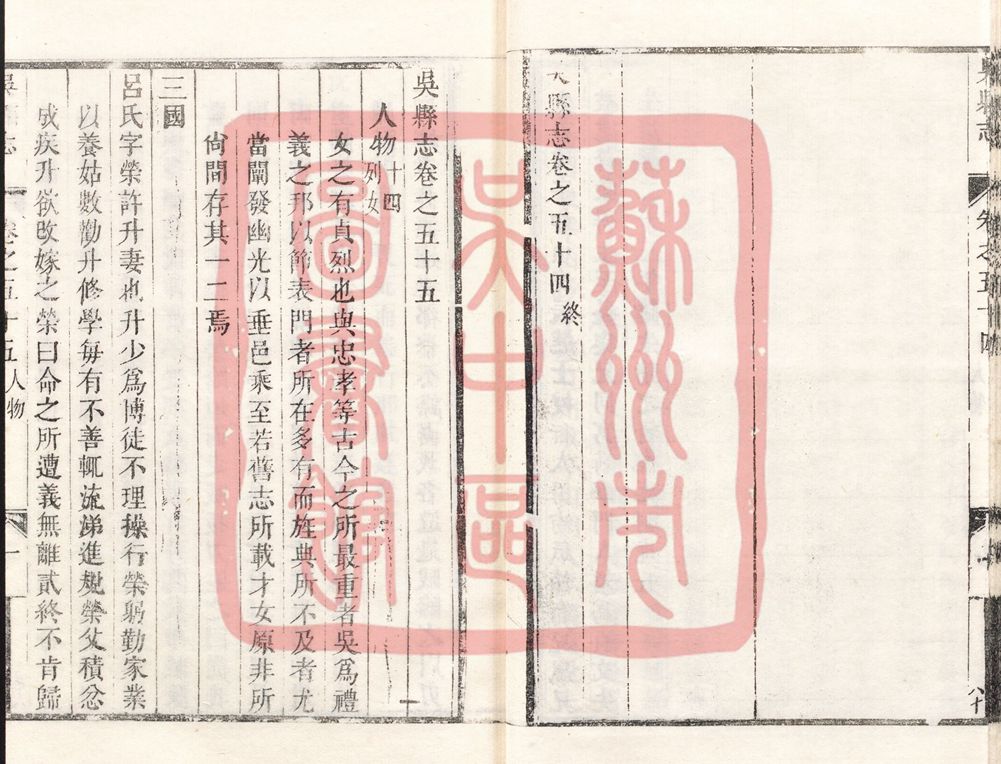 吳縣志
卷之五十四
八十
吳縣志卷之五十四終
蘇州市
吳中區
圖書館
吳縣志卷之五十五
人物十四
列女
女之有貞烈也與忠孝等古今之所最重者吳爲禮
義之邦以節表門者所在多有而旌典所不及者尤
當闡發幽光以垂邑乘至若舊志所載才女原非所
尙間存其一二焉
三國
呂氏字榮許升妻也升少爲博徒不理操行榮躬勤家業
以養姑數勸升修學每有不善輒流涕進規榮父積忿
成疾升欲改嫁之榮曰命之所遭義無離貳終不肯歸
吳縣志
卷之五十五
人物
一